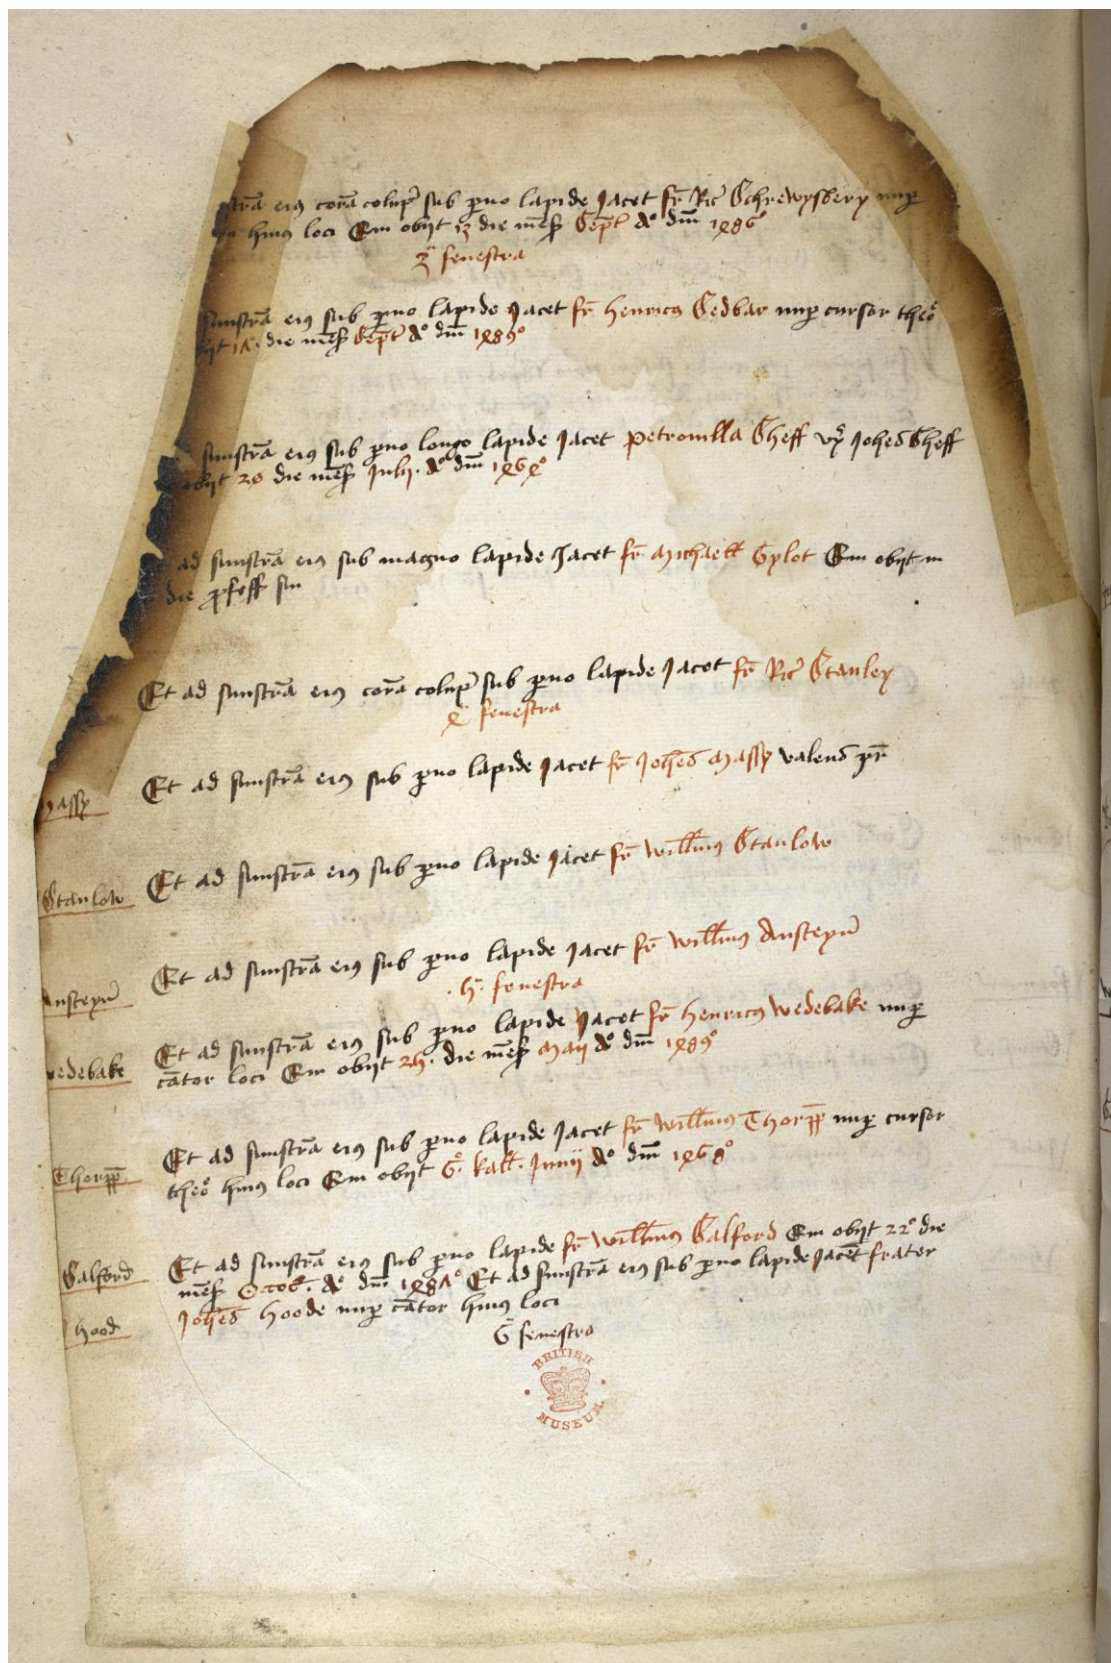 strā eiꝰ corā colūpꝰ sub ꝑuo lapide Jacet fr̄ Ric̄ Schrewysbery nuꝑ
huiꝰ loci Qui obijt 13 die mēſ Sept̄ Aº dm̄ 1486º
3ª fenestra
sinistrā eiꝰ sub ꝑuo lapide Jacet fr̄ henricꝰ Sedbar nuꝑ cursor theoº
die mēſ Sept̄ Aº dm̄ 1489º
sinistrā eiꝰ sub ꝑuo longo lapide Jacet Petronilla Sheff vxº Joħes Sheff
obijt 20 die mēſ Julij. Aº dm̄ 1464º
ad sinistrā eiꝰ sub magno lapide Jacet fr̄ Michaell Gylot Qui obijt in
die ꝓfess su
Et ad sinistrā eiꝰ corā colūpꝰ sub ꝑuo lapide Jacet fr̄ Ric̄ Stanley
4ª fenestra
Massy
Et ad sinistrā eiꝰ sub ꝑuo lapide Jacet fr̄ Joħes Massy valens pr̄
Stanlow
Et ad sinistrā eiꝰ sub ꝑuo lapide Jacet fr̄ Willm̄ꝰ Stanlow
Ansteyn̄
Et ad sinistrā eiꝰ sub ꝑuo lapide Jacet fr̄ Willm̄ꝰ Ansteyn̄
.5ª. fenestra
wedebake
Et ad sinistrā eiꝰ sub ꝑuo lapide Jacet fr̄ henricꝰ wedebake nuꝑ
cātor loci Qui obijt 25. die mēſ Maij Aº dm̄ 1489º
Thorpp̄
Et ad sinistrā eiꝰ sub ꝑuo lapide Jacet fr̄ Willm̄ꝰ Thorpp̄ nuꝑ cursor
theoº huiꝰ loci Qui obijt 6º. kaƚƚ. Junij Aº dm̄ 1468º
Salford
Et ad sinistrā eiꝰ sub ꝑuo lapide fr̄ Willm̄ꝰ Salford Qui obijt 22º die
mēſ Octob̄. Aº dm̄ 1487º Et ad sinistrā eiꝰ sub ꝑuo lapide Jacēt frater
hood
Joħes hoode nuꝑ cātor huiꝰ loci
6ª fenestra
BRITISH
MUSEUM